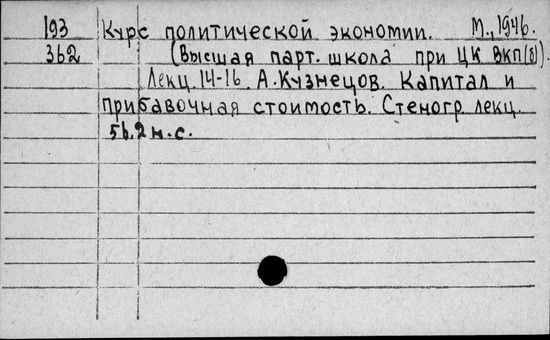 193 Курс политической экономии. М., 1946.
362 (Высшая парт. школа при ЦК ВКП(б)).
Лекц. 14-16. А. Кузнецов. Капитал и
прибавочная стоимость. Стеногр. лекц.
56,2 н.с.